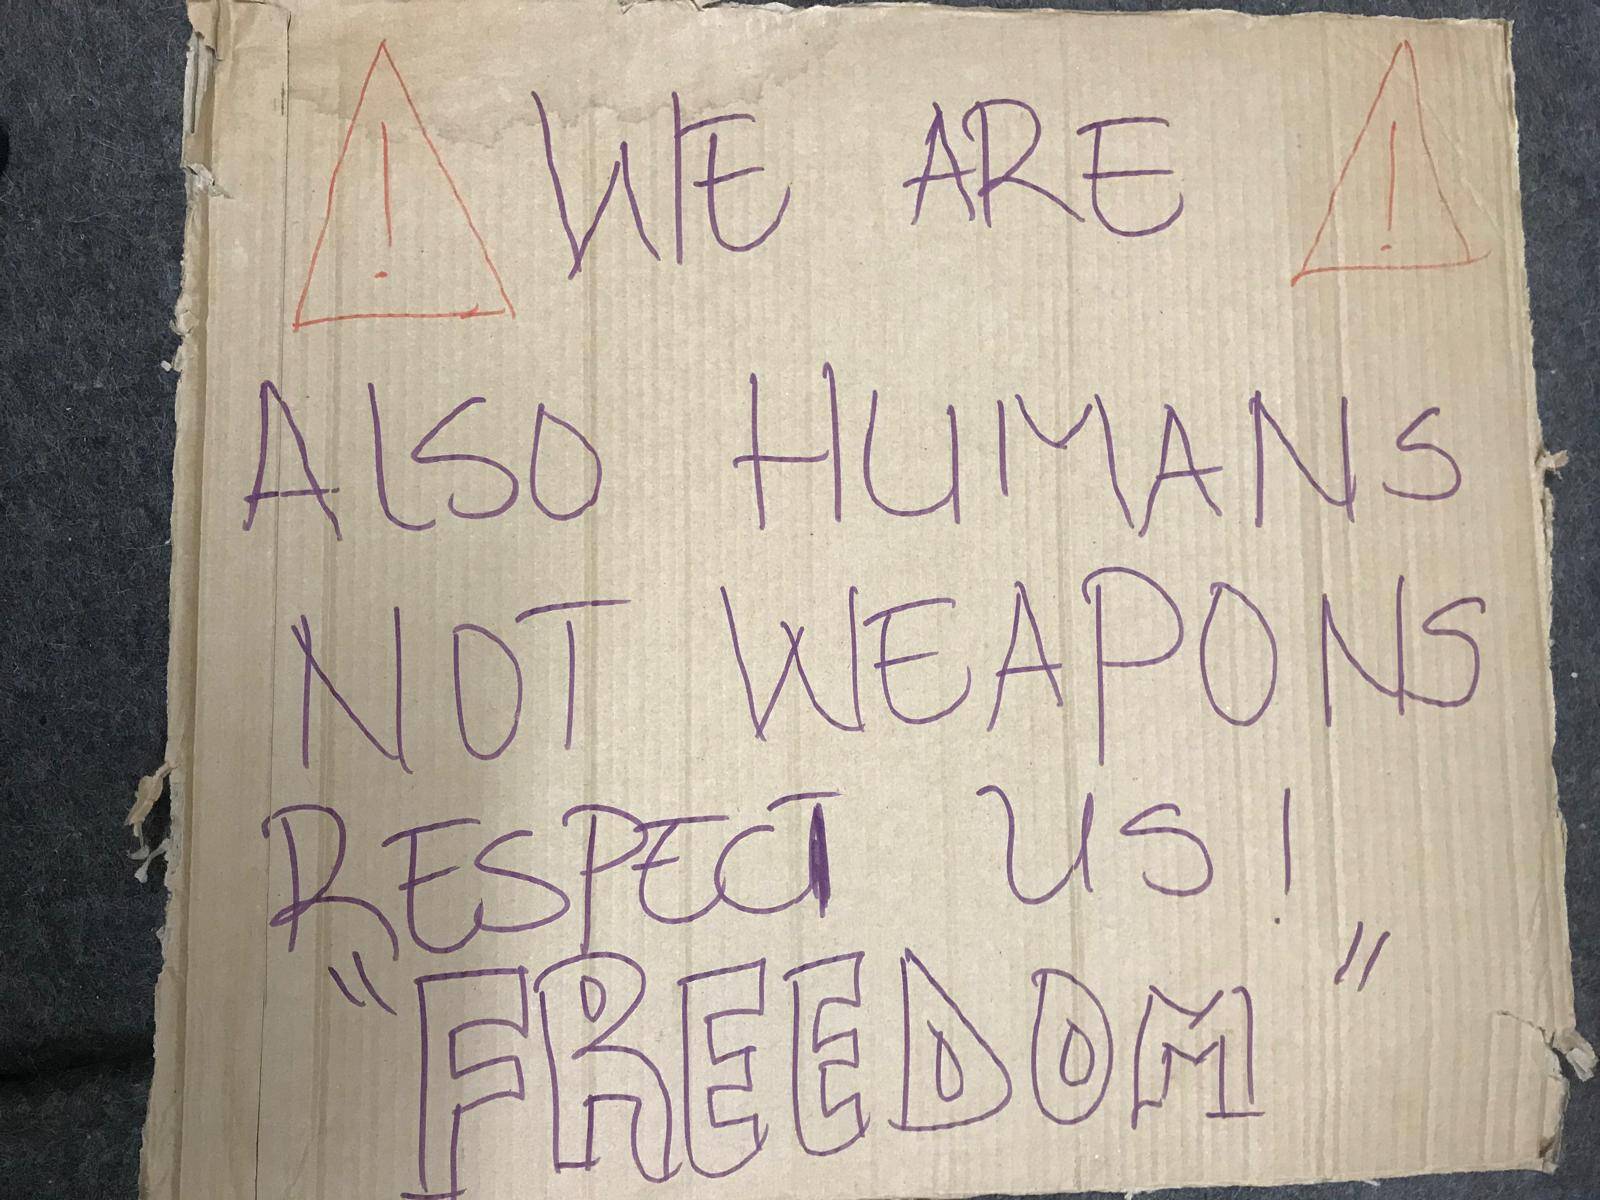 ! WE ARE !
ALSO HUMANS
NOT WEAPONS
RESPECT US!
"FREEDOM"